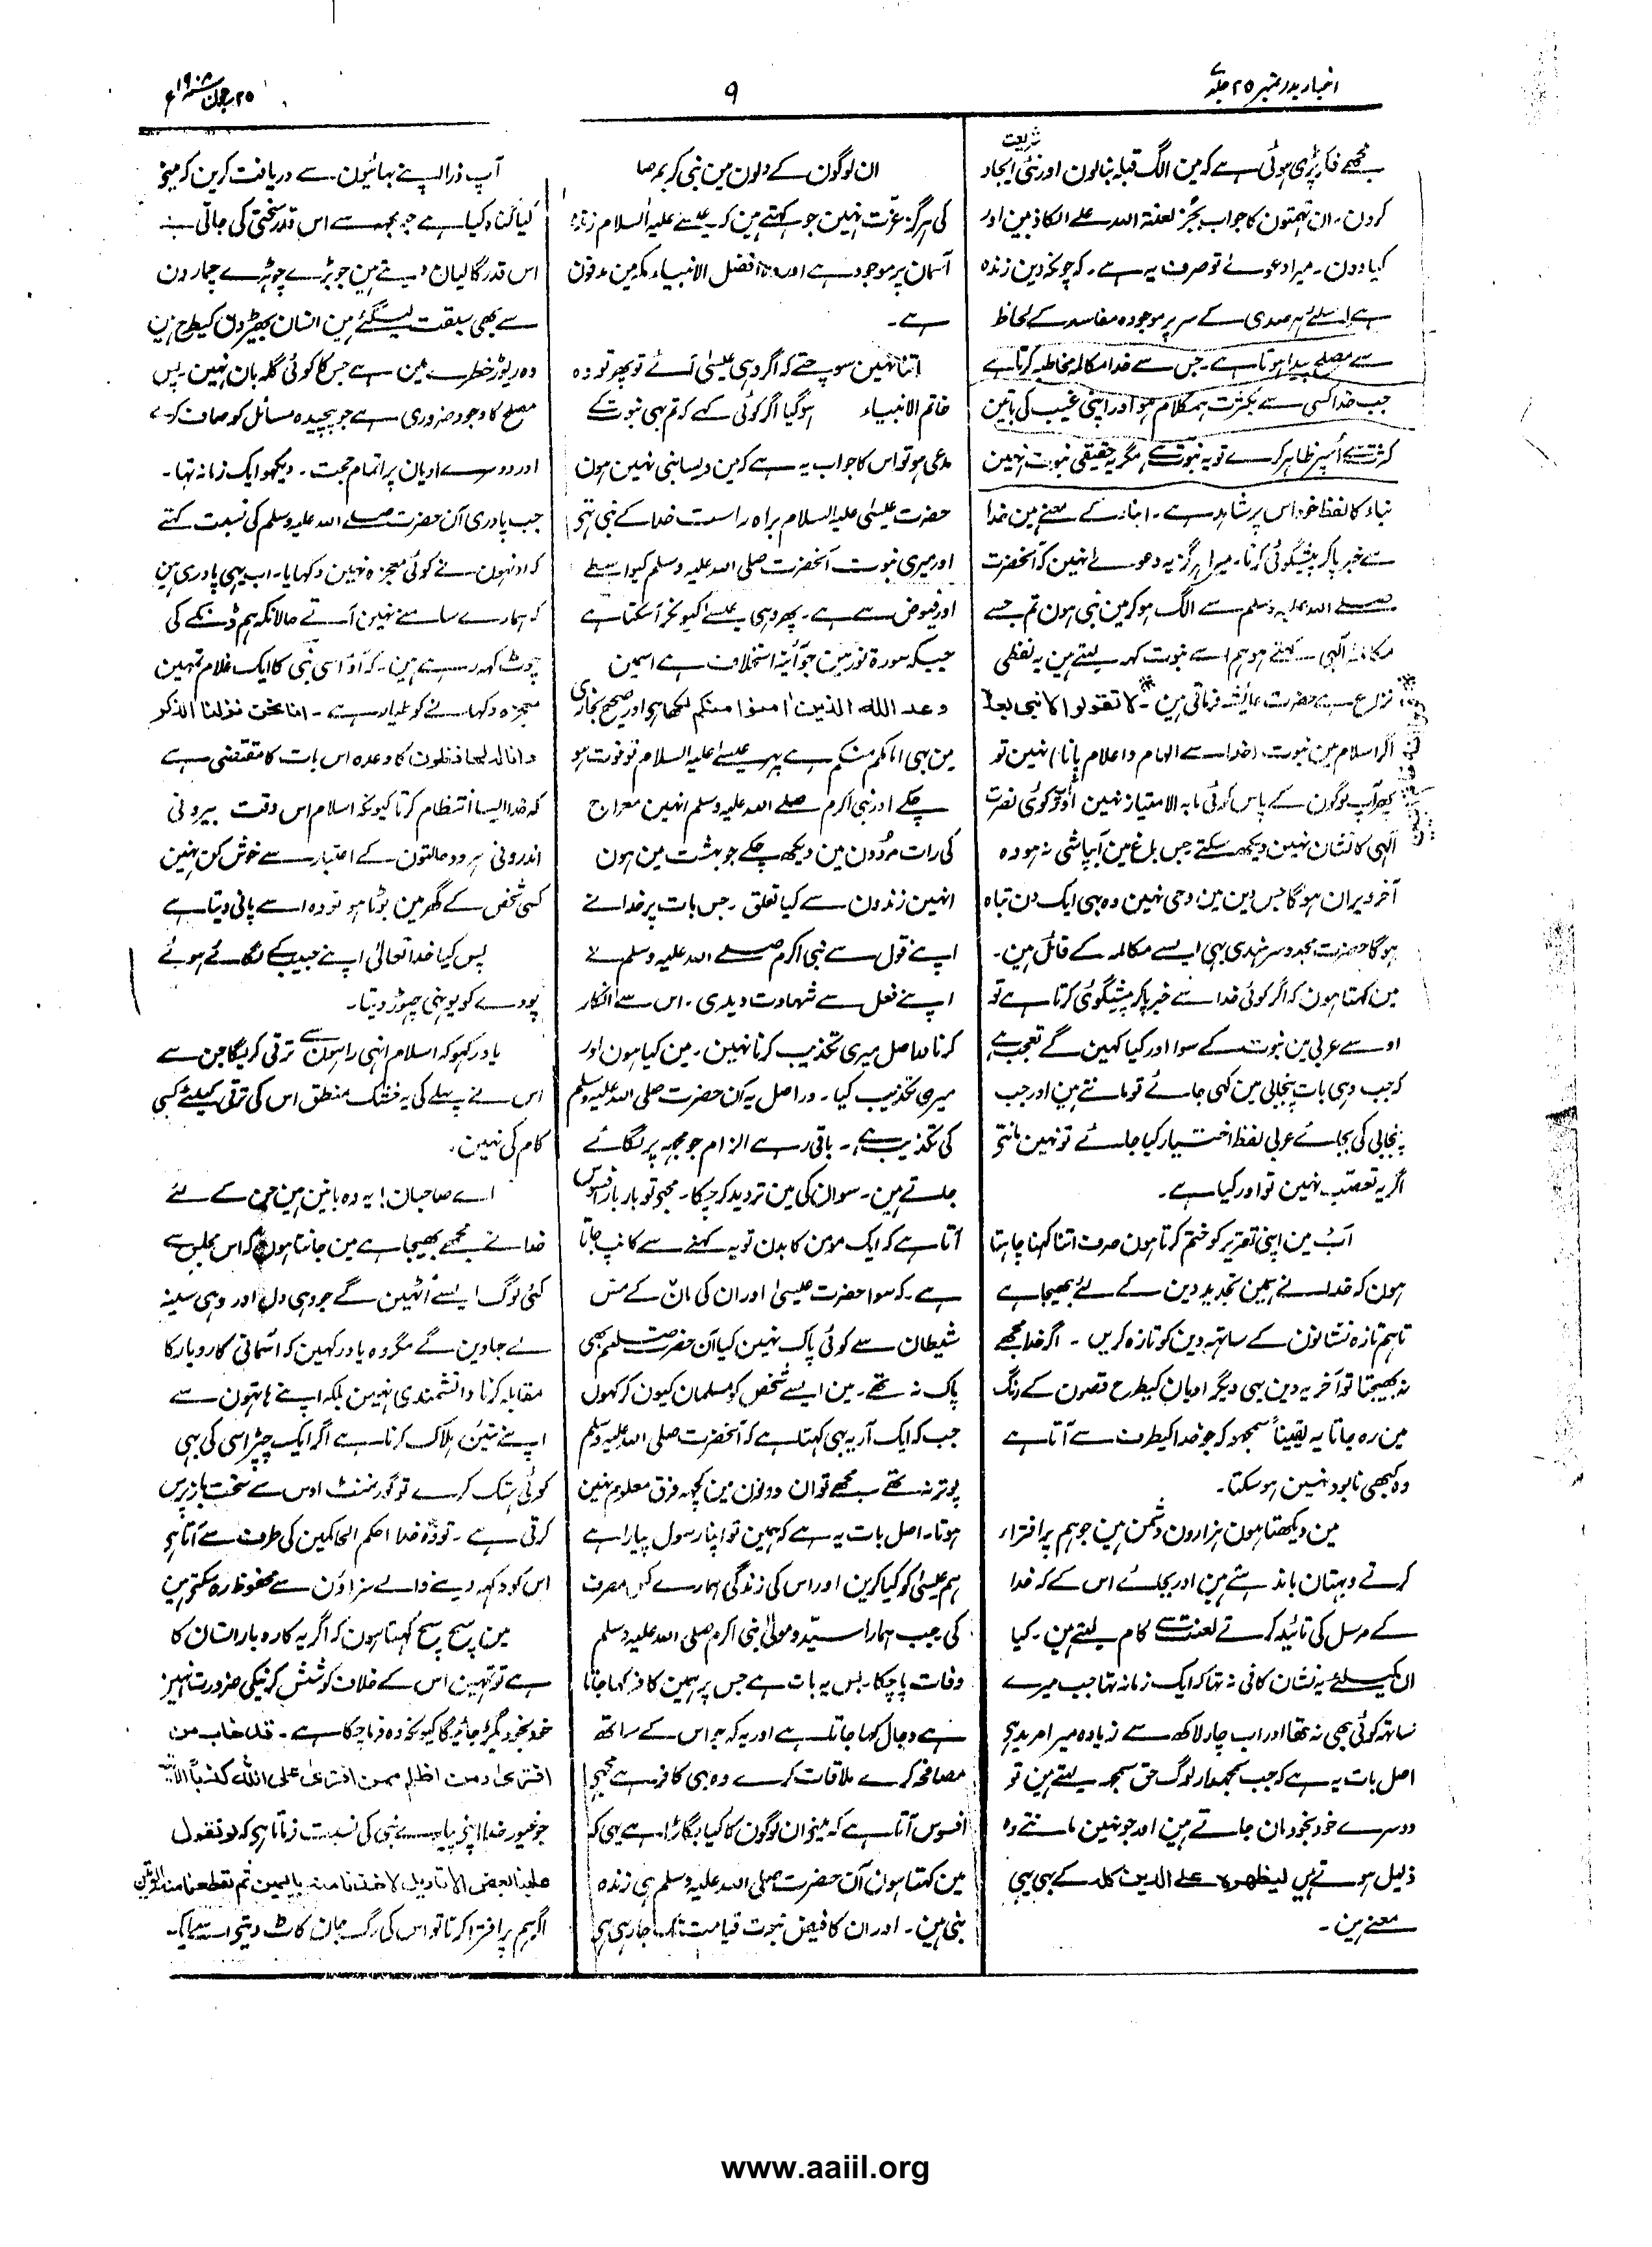 اخبار بدر نمبر ۲۵ جلد ۷
۹
۲۵ جون ۱۹۰۸ء
شریعت
مجھے فکر پڑی ہوئی ہے کہ مین الگ قبلہ بنالون اور نئی ایجاد
کردن۔ ان تہمتون کا جواب بجُز لعنۃ اللہ علے الکاذبین اور
کیا دون۔ میرا دعوے تو صرف یہ ہے۔ کہ چونکہ دین زندہ
ہے اسلئے ہر صدی کے سر پر موجودہ مفاسد کے لحاظ
سے مصلح پیدا ہوتا ہے۔ جس سے خدا مکالمہ مخاطبہ کرتا ہے
جب خدا کسی سے بکثرت ہمکلام ہو اور اپنی غیب کی باتین
کثرت سے اُسپر ظاہر کرے تو یہ نبوت ہے مگر یہ حقیقی نبوت نہین
نباء کا لفظ خود اس پر شاہد ہے۔ انباء کے معنے مین خدا
سے خبر پا کر پیشگوئی کرنا۔ میرا ہرگز یہ دعوے نہین کہ آنحضرت
صلے اللہ علیہ وسلم سے الگ ہو کر مین نبی ہون تم جسے
مکالمہ الٰہی کہتے ہو ہم اسے نبوت کہہ لیتے ہین یہ لفظی
نزاع ہے حضرت عایشہ فرماتی ہین۔ لا تقولوا لا نبی بعدہ
اگر اسلام مین نبوت (خدا سے الہام و اعلام پانا) نہین تو
پھر آپ لوگون کے پاس کوئی مابہ الامتیاز نہین اور کوئی نصرت
الٰہی کا نشان نہین دیکھ سکتے جس باغ مین آبپاشی نہ ہو وہ
آخر ویران ہوگا جس دین مین وحی نہین وہ بہی ایک دن تباہ
ہوگا حضرت مجدد سرہندی بہی ایسے مکالمہ کے قائل ہین۔
مین کہتا ہون کہ اگر کوئی خدا سے خبر پا کر پیشگوئی کرتا ہے تو
اوسے عربی مین نبوت کے سوا اور کیا کہین گے تعجب ہے
کہ جب وہی بات پنجابی مین کہی جائے تو مانتے ہین اور جب
پنجابی کی بجائے عربی لفظ اختیار کیا جائے تو نہین مانتے
اگر یہ تعصّب نہین تو اور کیا ہے۔
اب مین اپنی تقریر کو ختم کرتا ہون صرف اتنا کہنا چاہتا
ہون کہ خدا نے ہمین تجدید دین کے لئے بھیجا ہے
تا ہم تازہ نشانون کے ساتہہ دین کو تازہ کرین۔ اگر خدا مجھے
نہ بھیجتا تو آخر یہ دین بہی دیگر ادیان کیطرح قصون کے رنگ
مین رہ جاتا یہ یقیناً سمجھو کہ جو خدا کیطرف سے آتا ہے
وہ کبھی نابود نہین ہو سکتا۔
مین دیکھتا ہون ہزارون دشمن ہین جو ہم پر افتراء
کرتے و بہتان باندہتے ہین اور بجائے اس کے کہ خدا
کے مرسل کی تائید کرتے لعنت سے کام لیتے ہین۔ کیا
ان کیلئے یہ نشان کافی نہ تہا کہ ایک زمانہ تہا جب میرے
ساتہہ کوئی بھی نہ تھا اور اب چار لاکھ سے زیادہ میرا مرید ہے
اصل بات یہ ہے کہ جب سمجھدار لوگ حق سمجھ لیتے ہین تو
دوسرے خود بخود مان جاتے ہین اور جو نہین مانتے وہ
ذلیل ہوتے ہین لیظھرہ علے الدین کلہ کے بہی یہی
معنے ہین۔
ان لوگون کے دلون مین نبی کریم صا
کی ہرگز عزّت نہین جو کہتے ہین کہ عیسے علیہ السلام زندہ
آسمان پر موجود ہے اور ہمارا افضل الانبیاء مدینہ مین مدفون
ہے۔
اتنا نہین سوچتے کہ اگر وہی عیسیٰ آئے تو پھر تو وہ
خاتم الانبیاء ہوگیا اگر کوئی کہے کہ تم بہی نبوت کے
مدعی ہو تو اس کا جواب یہ ہے کہ مین ویسا نبی نہین ہون
حضرت عیسیٰ علیہ السلام براہ راست خدا کے نبی تہے
اور میری نبوت آنحضرت صلی اللہ علیہ وسلم کیواسطے
اور فیوض سے ہے۔ پھر وہی عیسے کیونکر آسکتا ہے
جبکہ سورۃ نور مین جو آیۃ استخلاف ہے اسمین
وعد اللہ الذین اٰمنوا منکم لکھا ہے اور صحیح بخاری
مین بہی امامکم منکم ہے پہر عیسے علیہ السلام تو فوت ہو
چکے اور نبی اکرم صلے اللہ علیہ وسلم انہین معراج
کی رات مُردون مین دیکھ چکے جو بہشت مین ہون
انہین زندون سے کیا تعلق۔ جس بات پر خدا نے
اپنے قول سے نبی اکرم صلے اللہ علیہ وسلم نے
اپنے فعل سے شہادت دیدی۔ اس سے انکار
کرنا دراصل میری تکذیب کرنا نہین۔ مین کیا ہون اور
میری تکذیب کیا۔ دراصل یہ آن حضرت صلی اللہ علیہ وسلم
کی تکذیب ہے۔ باقی رہے الزام جو مجھ پر لگائے
جاتے ہین۔ سو ان کی مین تردید کر چکا۔ مجھے تو بار بار افسوس
آتا ہے کہ ایک مومن کا بدن تو یہ کہنے سے کانپ جاتا
ہے۔ کہ سوا حضرت عیسیٰ اور ان کی مان کے مس
شیطان سے کوئی پاک نہین کیا آن حضرت صلعم بھی
پاک نہ تھے۔ مین ایسے شخص کو مسلمان کیون کر کہون
جب کہ ایک آریہ بہی کہتا ہے کہ آنحضرت صلی اللہ علیہ وسلم
پوتر نہ تھے مجھے تو ان دونون مین کچہہ فرق معلوم نہین
ہوتا۔ اصل بات یہ ہے کہ ہمین تو اپنا رسول پیارا ہے
ہم عیسیٰ کو کیا کرین اور اس کی زندگی ہمارے کس مصرف
کی جب ہمارا سیّد و مولیٰ نبی اکرم صلی اللہ علیہ وسلم
وفات پا چکا۔ بس یہ بات ہے جس پر ہمین کافر کہا جاتا
ہے دجال کہا جاتا ہے اور یہ کہ جو اس کے ساتھ
مصافحہ کرے ملاقات کرے وہ بہی کافر ہے مجھے
افسوس آتا ہے کہ مینے ان لوگون کا کیا بگاڑا ہے یہی کہ
مین کہتا ہون آن حضرت صلی اللہ علیہ وسلم ہی زندہ
نبی ہین۔ اور ان کا فیض نبوت قیامت تک جاری ہے
آپ ذرا اپنے بہائیون سے دریافت کرین کہ مینے
کیا گناہ کیا ہے جو مجھ سے اس قدر سختی کی جاتی ہے
اس قدر گالیان دیتے ہین جو بڑے چوہڑے چمارون
سے بھی سبقت لیگئے ہین انسان بھیڑون کیطرح ہین
وہ ریوڑ خطرے مین ہے جس کا کوئی گلہ بان نہین۔ پس
مصلح کا وجود ضروری ہے جو پیچیدہ مسائل کو صاف کرے
اور دوسرے ادیان پر اتمام حجت۔ دیکھو ایک زمانہ تہا۔
جب پادری آن حضرت صلے اللہ علیہ وسلم کی نسبت کہتے
کہ اونہون نے کوئی معجزہ نہین دکہایا۔ اب یہی پادری ہین
کہ ہمارے سامنے نہین آتے حالانکہ ہم ڈنکے کی
چوٹ کہہ رہے ہین۔ کہ آؤ اسی نبی کا ایک غلام تمہین
معجزہ دکہانے کو طیار ہے۔ انا نحن نزلنا الذکر
وانا لہ لحافظون کا وعدہ اس بات کا مقتضی ہے
کہ خدا ایسا انتظام کرتا کیونکہ اسلام اس وقت بیرونی
اندرونی ہر دو حالتون کے اعتبار سے خوش کن نہین
کسی شخص کے گھر مین بوٹا ہو تو وہ اسے پانی دیتا ہے
پس کیا خدا تعالیٰ اپنے حبیب کے لگائے ہوئے
پودے کو یونہی چہوڑ دیتا۔
یاد رکہو کہ اسلام انہی راہون سے ترقی کریگا جن سے
اس نے پہلے کی یہ خشک منطق اس کی ترقی کیلئے کسی
کام کی نہین۔
اے صاحبان! یہ وہ باتین ہین جن کے لئے
خدا نے مجھے بھیجا ہے مین جانتا ہون کہ اس مجلس سے
کئی لوگ ایسے اُٹہین گے جو وہی دل اور وہی سینہ
لے جاوین گے مگر وہ یاد رکہین کہ آسمانی کاروبار کا
مقابلہ کرنا دانشمندی نہین بلکہ اپنے ہاتہون سے
اپنے تئین ہلاک کرنا ہے اگر ایک چپڑاسی کی بہی
کوئی ہتک کرے تو گورنمنٹ اوس سے سخت بازپرس
کرتی ہے۔ تو وہ خدا احکم الحاکمین کی طرف سے آتا ہے
اس کو دکہہ دینے والے سزاؤن سے محفوظ رہ سکتے ہین
مین سچ سچ کہتا ہون کہ اگر یہ کاروبار انسان کا
ہے تو تمہین اس کے خلاف کوشش کرنیکی ضرورت نہین
خود بخود بگڑ جائیگا کیونکہ وہ فرما چکا ہے۔ قد خاب من
افتری اور من اظلم ممن افتری علی اللہ کذباً الآیۃ
جو غیور خدا اپنے پیارے نبی کی نسبت فرماتا ہے کہ لو تقول
علینا بعض الاقاویل لاخذنا منہ بالیمین ثم لقطعنا منہ الوتین
اگر ہم پر افترا کرتا تو اس کی رگ جان کاٹ دیتے
www.aaiil.org